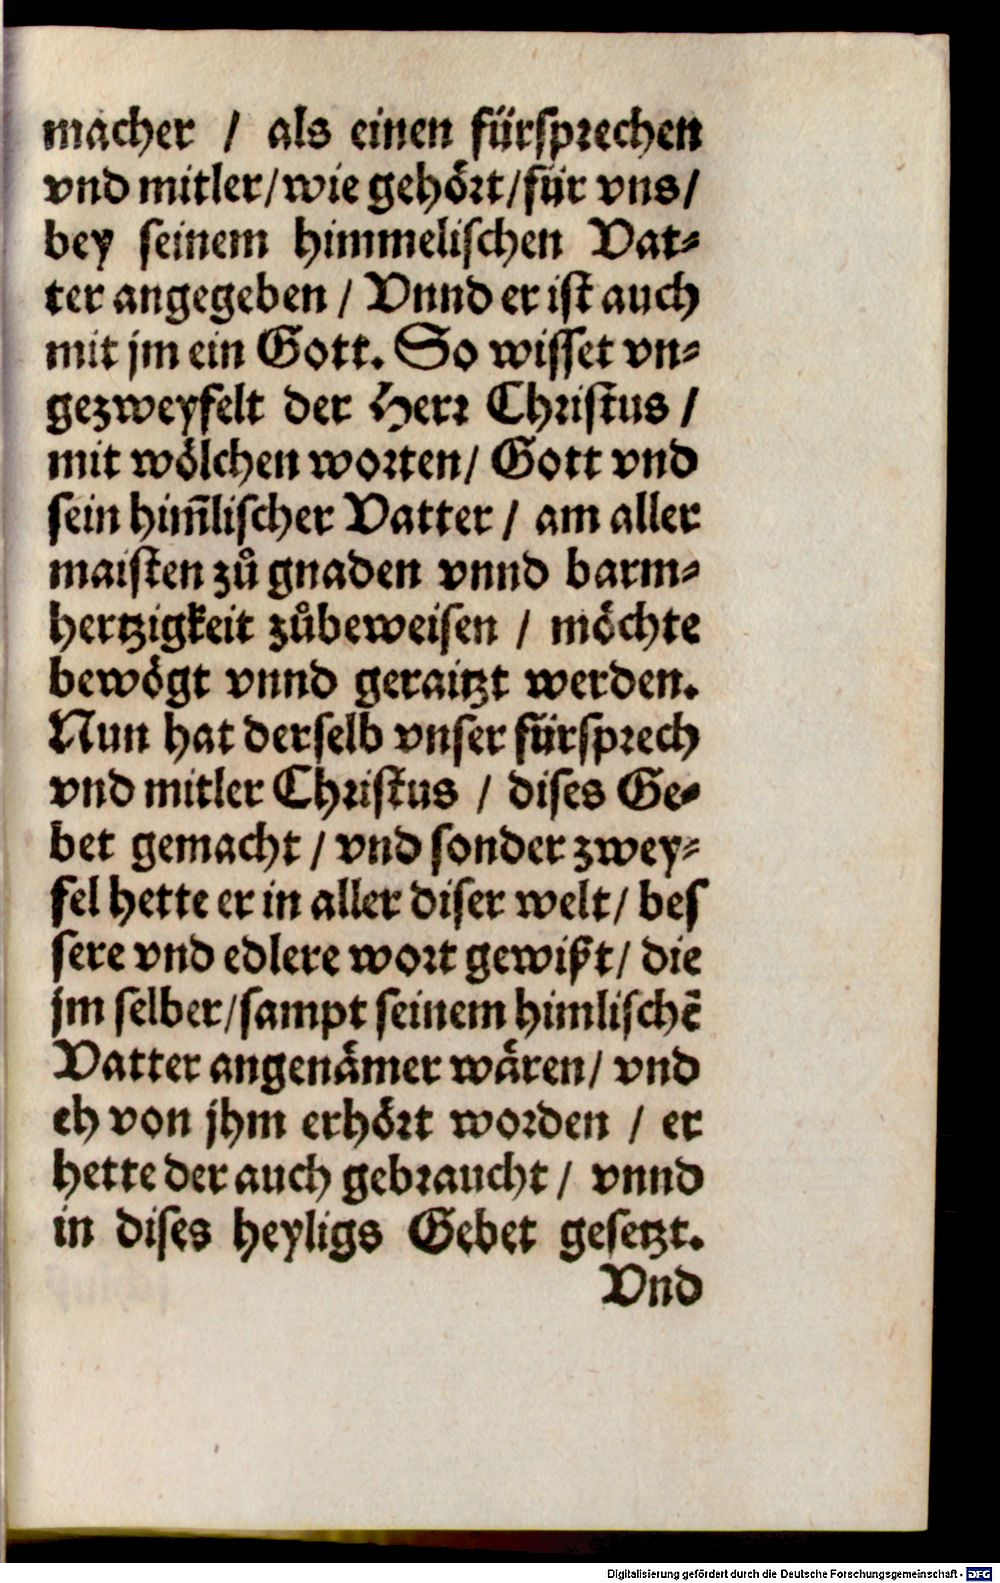 macher / als einen fürsprechen
vnd mitler/wie gehört/für vns/
bey seinem himmelischen Vat-
ter angegeben / Vnnd er ist auch
mit jm ein Gott. So wisset vn-
gezweyfelt der Herr Christus /
mit wölchen worten/ Gott vnd
sein him̃lischer Vatter / am aller
maisten zů gnaden vnnd barm-
hertzigkeit zůbeweisen / möchte
bewögt vnnd geraitzt werden.
Nun hat derselb vnser fürsprech
vnd mitler Christus / dises Ge-
bet gemacht / vnd sonder zwey-
fel hette er in aller diser welt/ bes
sere vnd edlere wort gewißt/ die
jm selber/sampt seinem himlischẽ
Vatter angenämer wären/ vnd
eh von jhm erhört worden / er
hette der auch gebraucht / vnnd
in dises heyligs Gebet gesetzt.
Vnd
Digitalisierung gefördert durch die Deutsche Forschungsgemeinschaft - DFG